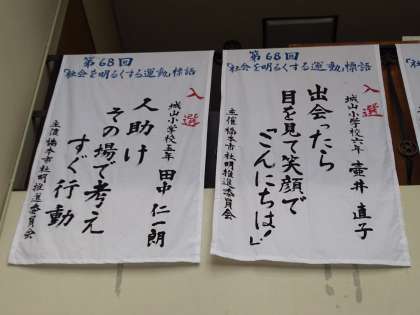 第68回
「社会を明るくする運動」標語
入選
城山小学校六年 壷井 直子
出会ったら
目を見て笑顔で
「こんにちは!」
主催橋本市社明推進委員会
第68回
「社会を明るくする運動」標語
入選
城山小学校五年 田中 仁一朗
人助け
その場で考え
すぐ行動
主催橋本市社明推進委員会